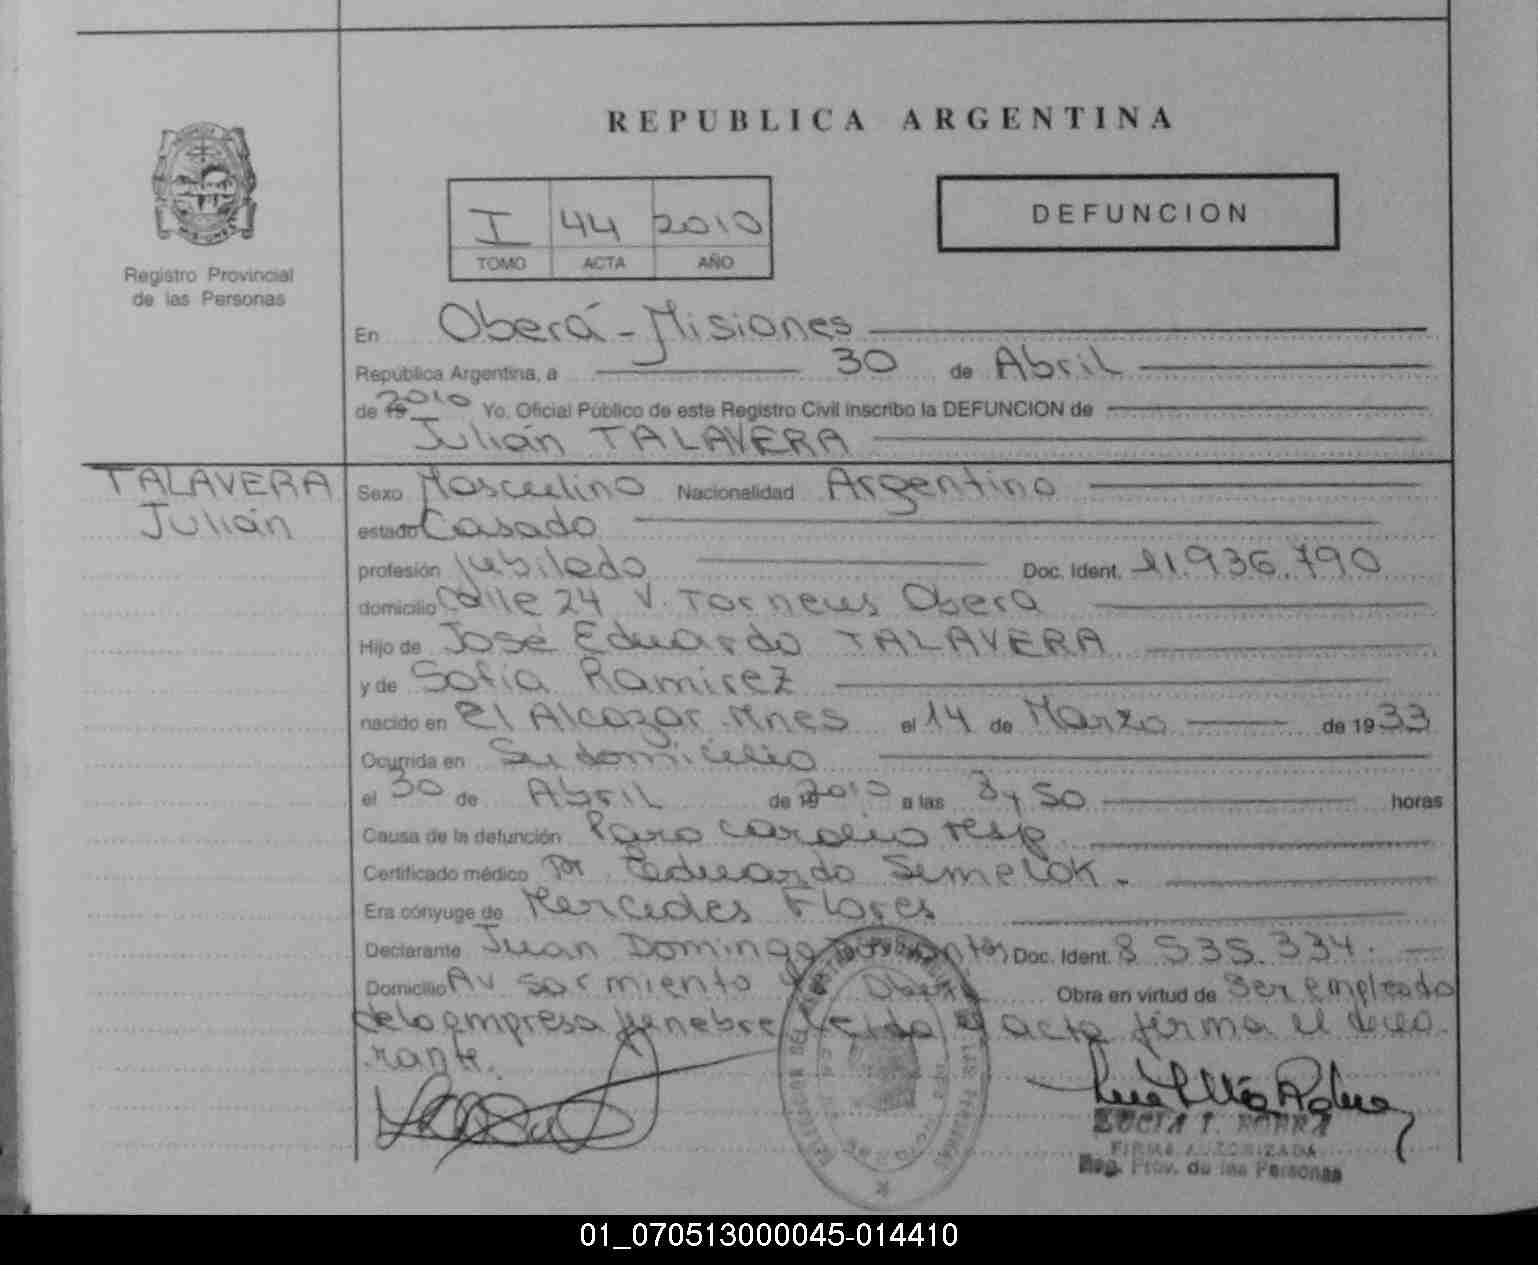 REPUBLICA ARGENTINA
I 44 2010
TOMO ACTA AÑO
DEFUNCION
Registro Provincial
de las Personas
En Oberá - Misiones
República Argentina, a 30 de Abril
de 19 2010 Yo, Oficial Público de este Registro Civil inscribo la DEFUNCION de
Julián TALAVERA
TALAVERA
Julián
Sexo Masculino Nacionalidad Argentino
estado Casado
profesión Jubilado Doc. Ident. 11.936.790
domicilio Calle 24 V. Torneus Oberá
Hijo de José Eduardo TALAVERA
y de Sofía Ramirez
nacido en El Alcazar - Mnes el 14 de Marzo de 1933
Ocurrida en Su domicilio
el 30 de Abril de 19 2010 a las 8 y 50 horas
Causa de la defunción Paro cardio resp
Certificado médico Dr Eduardo Semelok.
Era cónyuge de Mercedes Flores
Declarante Juan Domingo Doc. Ident. 8.535.334.
Domicilio Av Sarmiento Oberá Obra en virtud de Ser empleado
de la empresa fúnebre Leída el acta firma el decla
rante.
LUCIA T. ROBRA
FIRMA AUTORIZADA
Reg. Prov. de las Personas
01_070513000045-014410